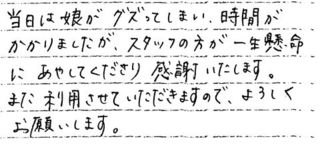 当日は娘がグズってしまい、時間が
かかりましたが、スタッフの方が一生懸命
にあやしてくださり感謝いたします。
また利用させていただきますので、よろしく
お願いします。